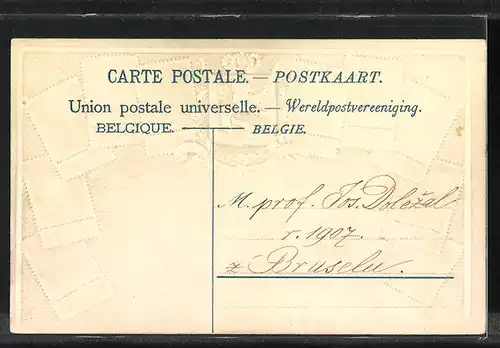 CARTE POSTALE.— POSTKAART.
Union postale universelle.— Wereldpostvereeniging.
BELGIQUE. BELGIE.
M. prof. Jos. Doležal
r. 1907.
z Bruselu.